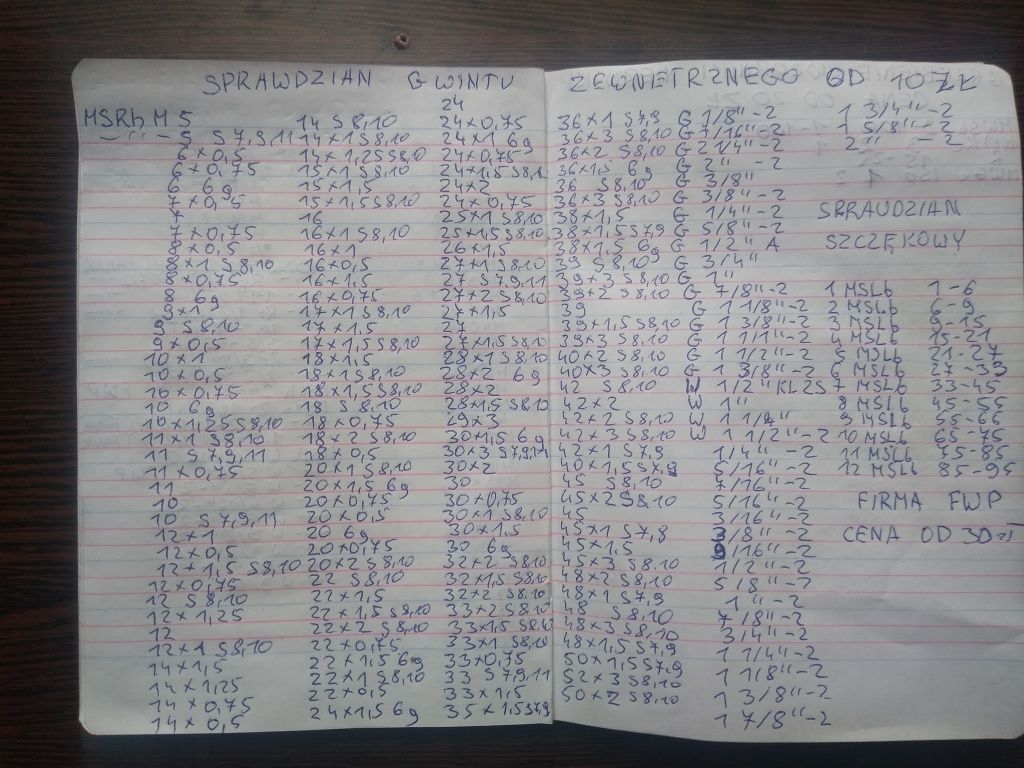 SPRAWDZIAN GWINTU ZEWNETRZNEGO OD 10 ZŁ
MSRh M 5
— " — 5 S 7,9,11
6 × 0,5
6 × 0,75
6 6g
7 × 0,75
7
7 × 0,75
8 × 0,5
8 × 1 S8,10
8 × 0,75
8 6g
9 × 1
9 S8,10
9 × 0,5
10 × 1
10 × 0,5
10 × 0,75
10 6g
10 × 1,25 S8,10
11 × 1 S8,10
11 S 7,9,11
11 × 0,75
11
10
10 S 7,9,11
12 × 1
12 × 0,5
12 × 1,5 S8,10
12 × 0,75
12 S8,10
12 × 1,25
12
12 × 1 S8,10
14 × 1,5
14 × 1,25
14 × 0,75
14 × 0,5
14 S8,10
14 × 1 S8,10
14 × 1,25 S8,10
15 × 1 S8,10
15 × 1,5
15 × 1,5 S8,10
16
16 × 1 S8,10
16 × 1
16 × 0,5
16 × 1,5
16 × 0,75
17 × 1 S8,10
17 × 1,5
17 × 1,5 S8,10
18 × 1,5
18 × 1 S8,10
18 × 1,5 S8,10
18 S8,10
18 × 0,75
18 × 2 S8,10
18 × 0,5
20 × 1 S8,10
20 × 1,5 6g
20 × 0,75
20 × 0,5
20 6g
20 × 0,75
20 × 2 S8,10
22 S8,10
22 × 1,5
22 × 1,5 S8,10
22 × 2 S8,10
22 × 0,75
22 × 1,5 6g
22 × 1 S8,10
22 × 0,5
24 × 1,5 6g
24
24 × 0,75
24 × 1 6g
24 × 0,75
24 × 1,5 S8,10
24 × 2
24 × 0,75
25 × 1 S8,10
25 × 1,5 S8,10
26 × 1,5
27 × 1 S8,10
27 S7,9,11
27 × 2 S8,10
27 × 1,5
27
27 × 1,5 S8,10
28 × 1 S8,10
28 × 2 6g
28 × 2
28 × 1,5 S8,10
29 × 3
30 × 1,5 6g
30 × 3 S7,9,11
30 × 2
30
30 × 0,75
30 × 1 S8,10
30 × 1,5
30 6g
32 × 2 S8,10
32 × 1,5 S8,10
32 × 2 S8,10
33 × 2 S8,10
33 × 1,5 S8,10
33 × 1 S8,10
33 × 0,75
33 S7,9,11
33 × 1,5
35 × 1,5 S7,9
36 × 1 S7,9
36 × 3 S8,10
36 × 2 S8,10
36 × 1,5 6g
36 S8,10
36 × 3 S8,10
38 × 1,5
38 × 1,5 S7,9
38 × 1,5 6g
39 S8,10
39 × 3 S8,10
39 × 2 S8,10
39
39 × 1,5 S8,10
39 × 3 S8,10
40 × 2 S8,10
40 × 3 S8,10
42 S8,10
42 × 2
42 × 2 S8,10
42 × 3 S8,10
42 × 1 S7,9
40 × 1,5 S7,9
45 S8,10
45 × 2 S8,10
45
45 × 1 S7,8
45 × 1,5
45 × 3 S8,10
48 × 2 S8,10
48 × 1 S7,9
48 S8,10
48 × 3 S8,10
48 × 1,5 S7,9
50 × 1,5 S7,9
52 × 3 S8,10
50 × 2 S8,10
G 1/8"-2
G 7/16"-2
G 2 1/4"-2
G 2" -2
G 3/8"
G 3/8"-2
G 1/4"-2
G 5/8"-2
G 1/2" A
G 3/4"
G 1"
G 7/8"-2
G 1 1/8"-2
G 1 3/8"-2
G 1 1/1"-2
G 1 1/2"-2
G 1 3/8"-2
W 1/2" KL2S
W 1"
W 1 1/4"
W 1 1/2"-2
1/4"-2
5/16"-2
7/16"-2
5/16"-2
3/16"-2
3/8"-2
9/16"-2
1/2"-2
5/8"-2
1"-2
7/8"-2
3/4"-2
1 1/4"-2
1 1/8"-2
1 3/8"-2
1 7/8"-2
1 3/4"-2
1 5/8"-2
2" -2
SPRAWDZIAN
SZCZĘKOWY
1 MSL6 1-6
2 MSL6 6-9
3 MSL6 9-15
4 MSL6 15-21
5 MSL6 21-27
6 MSL6 27-33
7 MSL6 33-45
8 MSL6 45-55
9 MSL6 55-66
10 MSL6 65-75
11 MSL6 75-85
12 MSL6 85-95
FIRMA FWP
CENA OD 30zł